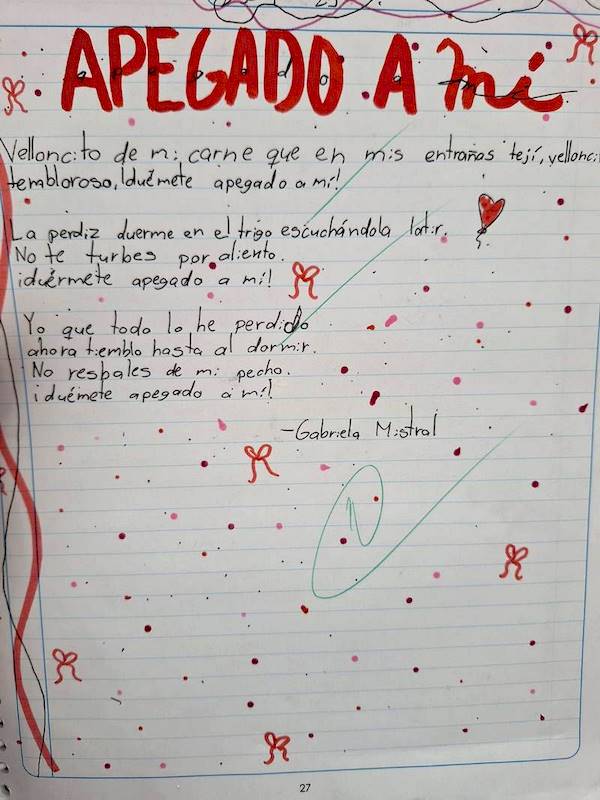 APEGADO A mí
Velloncito de mi carne que en mis entrañas tejí, vellonci
tembloroso, ¡duémete apegado a mí!
La perdiz duerme en el trigo escuchándola latir.
No te turbes por aliento.
¡duérmete apegado a mí!
Yo que todo lo he perdido
ahora tiemblo hasta al dormir.
No resbales de mi pecho.
¡duémete apegado a mí!
-Gabriela Mistral
27